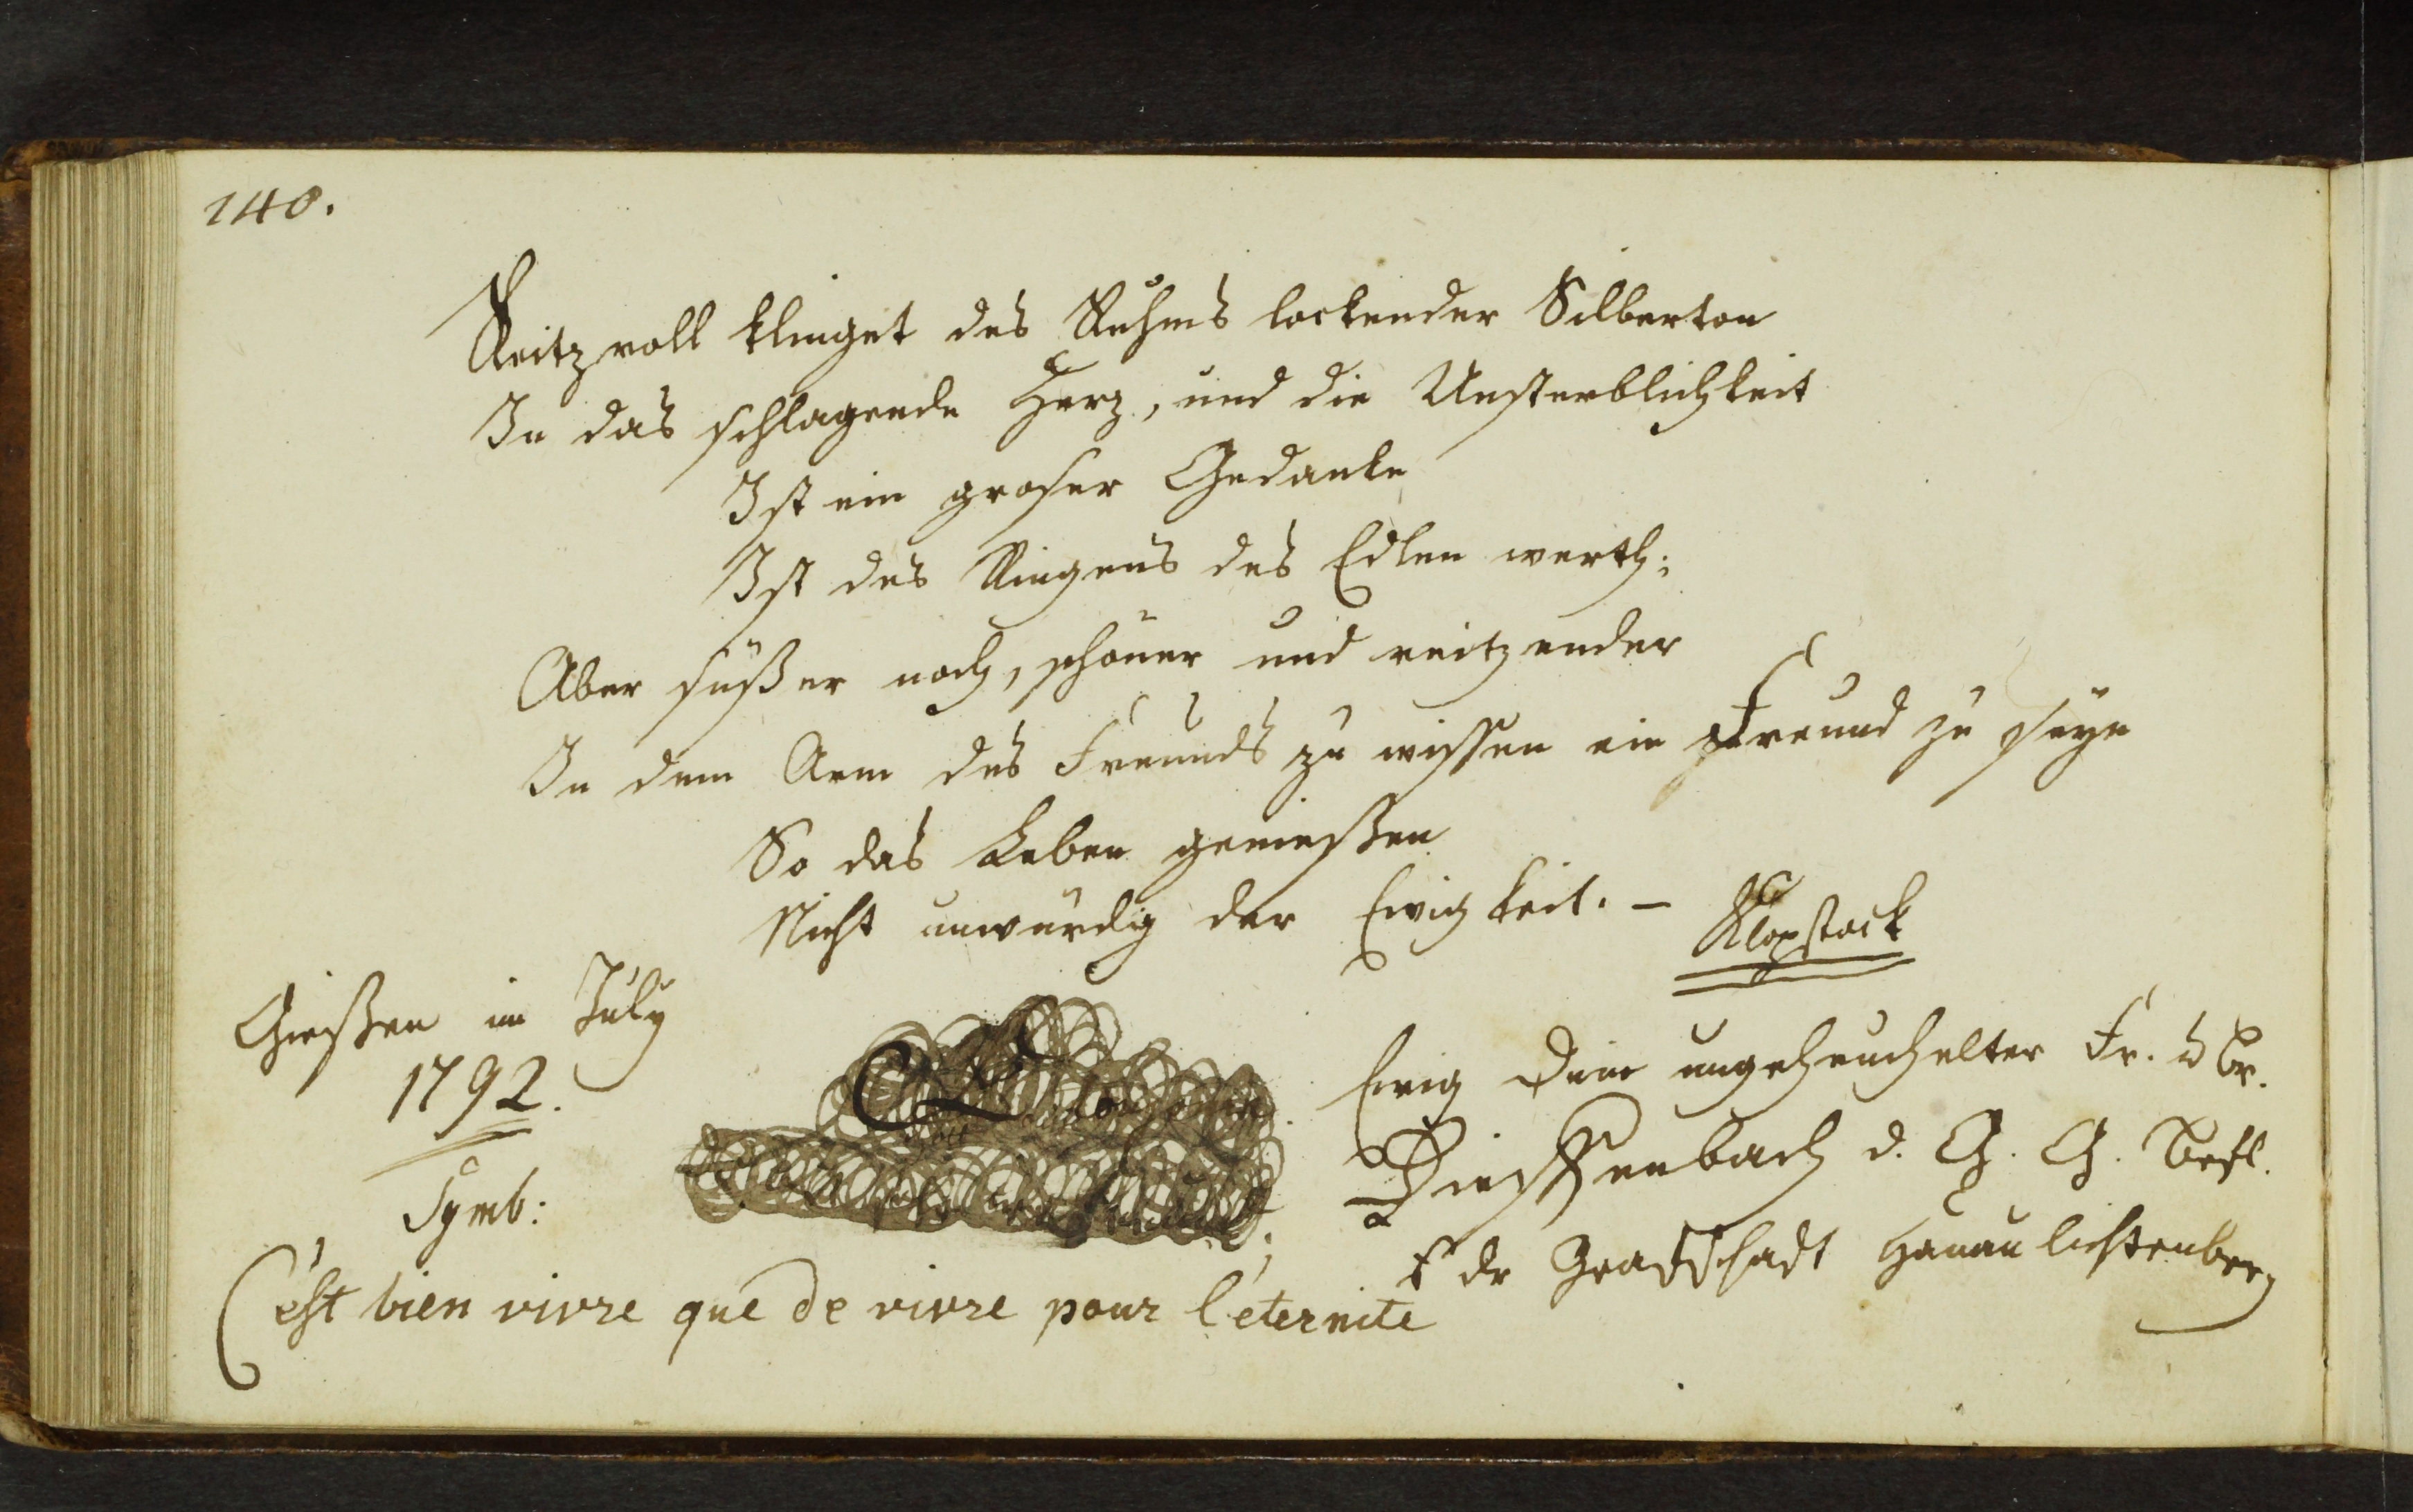 140.
Reitzvoll klinget des Ruhms lockender Silberton
In das schlagende Herz, und die Unsterblichkeit
Ist ein groser Gedanke
Ist des Ringens des Edlen werth;
Aber süßer noch, schöner und reitzender
In dem Arm des Freunds zu wissen ein Freund zu seyn
So das Leben genießen
Nicht unwürdig der Ewigkeit. –
Klopstock
Gießen im July
1792.
Symb:
C'est bien vivre que de vivre pour l'eternite
Ewig Dein ungeheuchelter Fr. u Br.
Dieffenbach d. G. G. Befl.
der Grafschadt Hanau lichtenberg